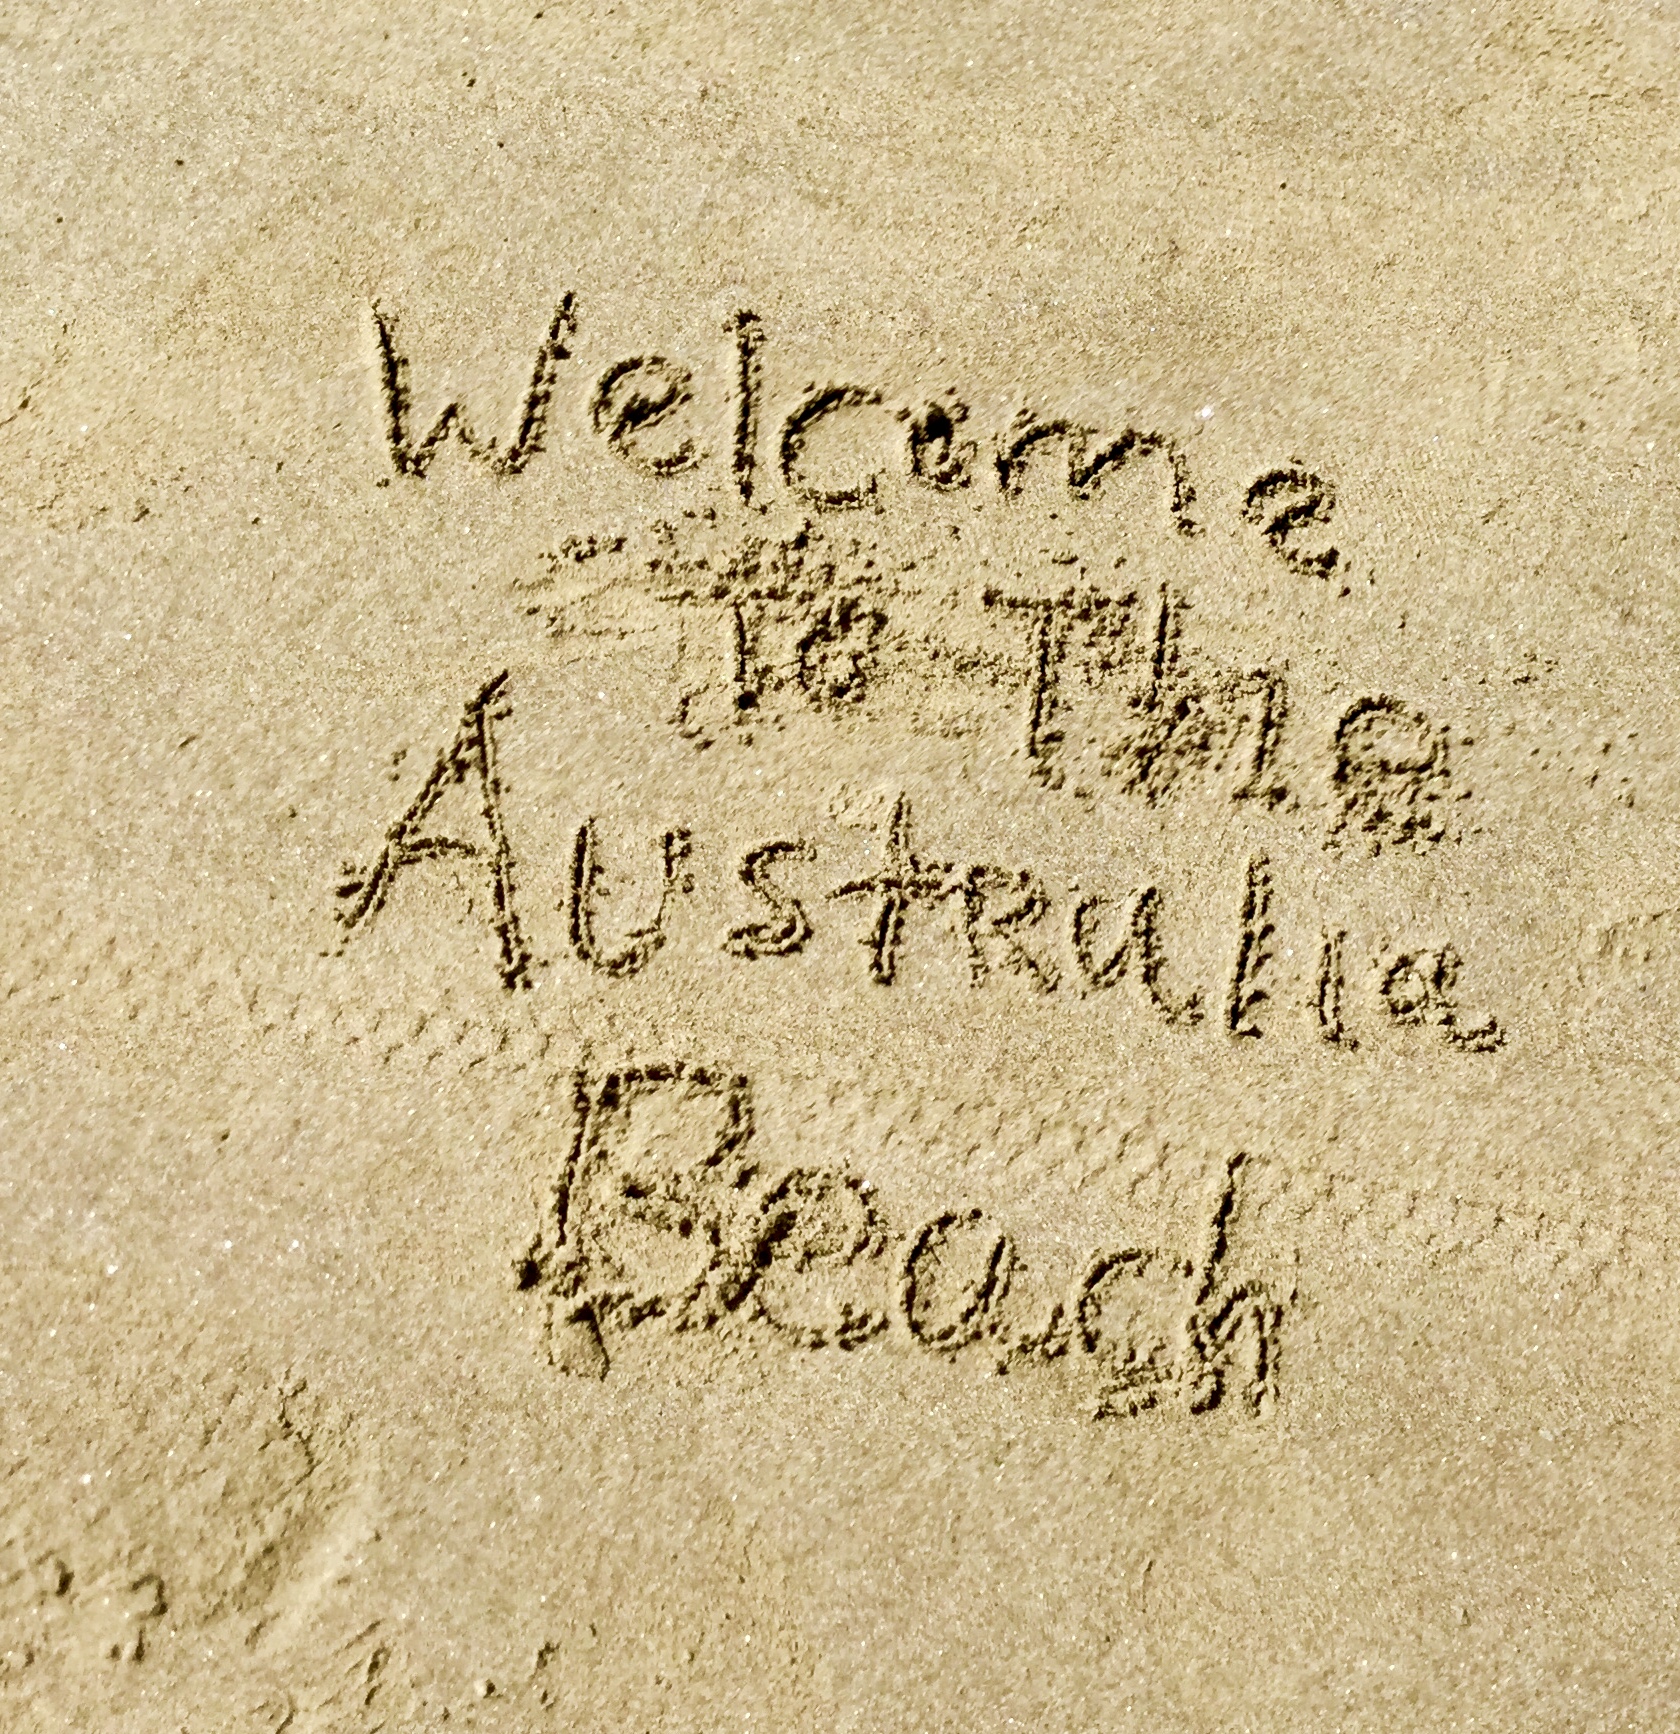 Welcome
to The
Australia
Beach